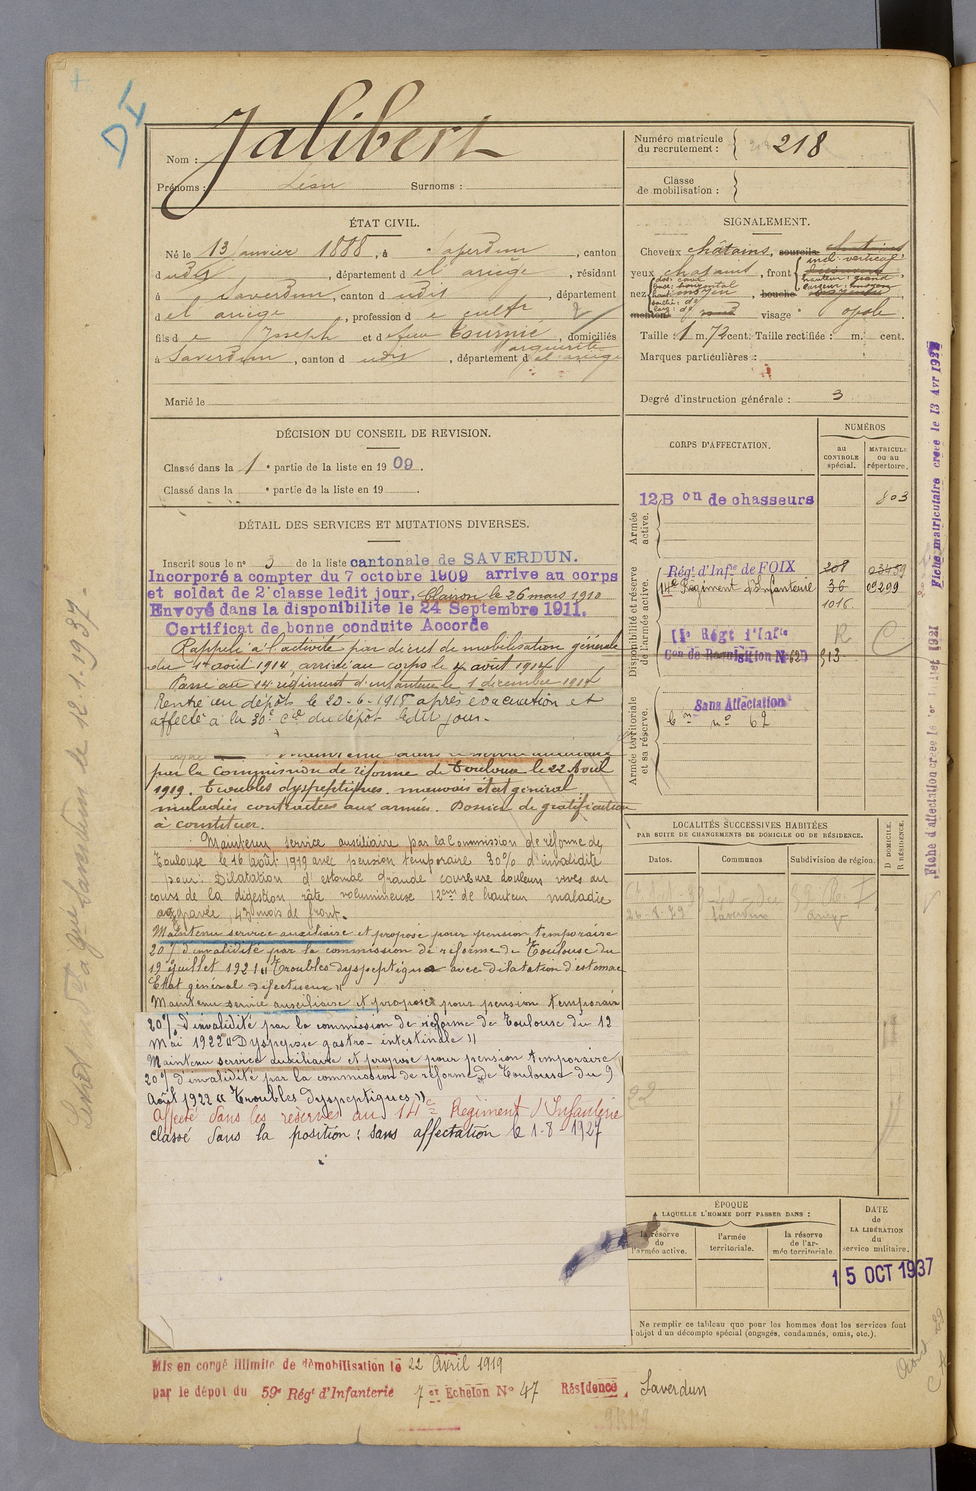 D I
Nom : Jalibert
Prénoms : Léon Surnoms :
Numéro matricule du recrutement : 218
Classe de mobilisation :
ÉTAT CIVIL.
Né le 13 Janvier 1888, à Saverdun, canton
dudit, département de l'ariège, résidant
à Saverdun, canton dudit, département
de l'ariège, profession de cultr
fils de Joseph et de feu Tournié Marguerite, domiciliés
à Saverdun, canton dudit, département de l'ariège
Marié le
SIGNALEMENT.
Cheveux châtains, sourcils châtains
yeux châtains, front incl: vertical
hauteur: grand
largeur: moyen
nez dos: cave
base: horizontal
haut: moyen, bouche
menton rond visage ovale
Taille : 1 m. 72 cent. Taille rectifiée : m. cent.
Marques particulières :
Degré d'instruction générale : 3
DÉCISION DU CONSEIL DE REVISION.
Classé dans la 1e partie de la liste en 1909.
Classé dans la e partie de la liste en 19
DÉTAIL DES SERVICES ET MUTATIONS DIVERSES.
Inscrit sous le no 3 de la liste cantonale de SAVERDUN.
Incorporé a compter du 7 octobre 1909 arrive au corps
et soldat de 2e classe ledit jour. Clairon le 26 mars 1910
Envoyé dans la disponibilite le 24 Septembre 1911.
Certificat de bonne conduite Accorde
Rappelé à l'activité par décret de mobilisation générale
du 1er août 1914 arrivé au corps le 4 août 1914
Passé au 14e régiment d'infanterie le 1 décembre 1914
Rentré au dépôt le 20-6-1918 après évacuation et
affecté à la 30e Cie du dépôt ledit jour.
par la Commission de réforme de Toulouse le 22 Avril
1919. Troubles dyspeptiques. mauvais état général
maladies contractées aux armées. Dossier de gratification
à constituer.
Maintenu service auxiliaire par la Commission de réforme de
Toulouse le 16 août 1919 avec pension temporaire 30% d'invalidité
pour: Dilatation d'estomac grande courbure douleurs vives au
cours de la digestion rate volumineuse 12cm de hauteur maladie
aggravée 43 mois de front.
Maintenu service auxiliaire et proposé pour pension temporaire
20% d'invalidité par la commission de réforme de Toulouse du
19 juillet 1921 "Troubles dyspeptiques avec dilatation d'estomac
Etat général défectueux"
Maintenu service auxiliaire et proposé pour pension temporaire
20% d'invalidité par la commission de réforme de Toulouse du 12
Mai 1922 "Dyspepsie gastro-intestinale"
Maintenu service auxiliaire et proposé pour pension temporaire
20% d'invalidité par la commission de réforme de Toulouse du 9
Août 1922 "Troubles dyspeptiques"
Affecté dans les réserves au 14e Régiment d'Infanterie
classé dans la position : sans affectation le 1-8-1927
CORPS D'AFFECTATION.
NUMÉROS
au CONTROLE spécial.
MATRICULE ou au répertoire.
Armée active.
12 Bon de chasseurs 803
Disponibilité et réserve de l'armée active.
Régt d'Infie de FOIX 208 03459
14e Régiment d'Infanterie 36 09299
1016
R C
Régt d'Infie
Con de Requisition No 620 513
Armée territoriale et sa réserve.
Sans Affectation
no 62
LOCALITÉS SUCCESSIVES HABITÉES
PAR SUITE DE CHANGEMENTS DE DOMICILE OU DE RÉSIDENCE.
Dates. Communes Subdivision de région. D DOMICILE. R RÉSIDENCE.
Saverdun
ÉPOQUE
A LAQUELLE L'HOMME DOIT PASSER DANS :
la réserve de l'armée active.
l'armée territoriale.
la réserve de l'armée territoriale
DATE de LA LIBÉRATION du service militaire.
15 OCT 1937
Ne remplir ce tableau que pour les hommes dont les services font
l'objet d'un décompte spécial (engagés, condamnés, omis, etc.).
Mis en congé illimite de démobilisation le 22 Avril 1919
par le dépot du 59e Régt d'Infanterie 7e Echelon No 47 Résidence, Saverdun
Fiche matriculaire creée le 13 Avr 1927
Fiche d'affectation creée le 1er Juillet 1921